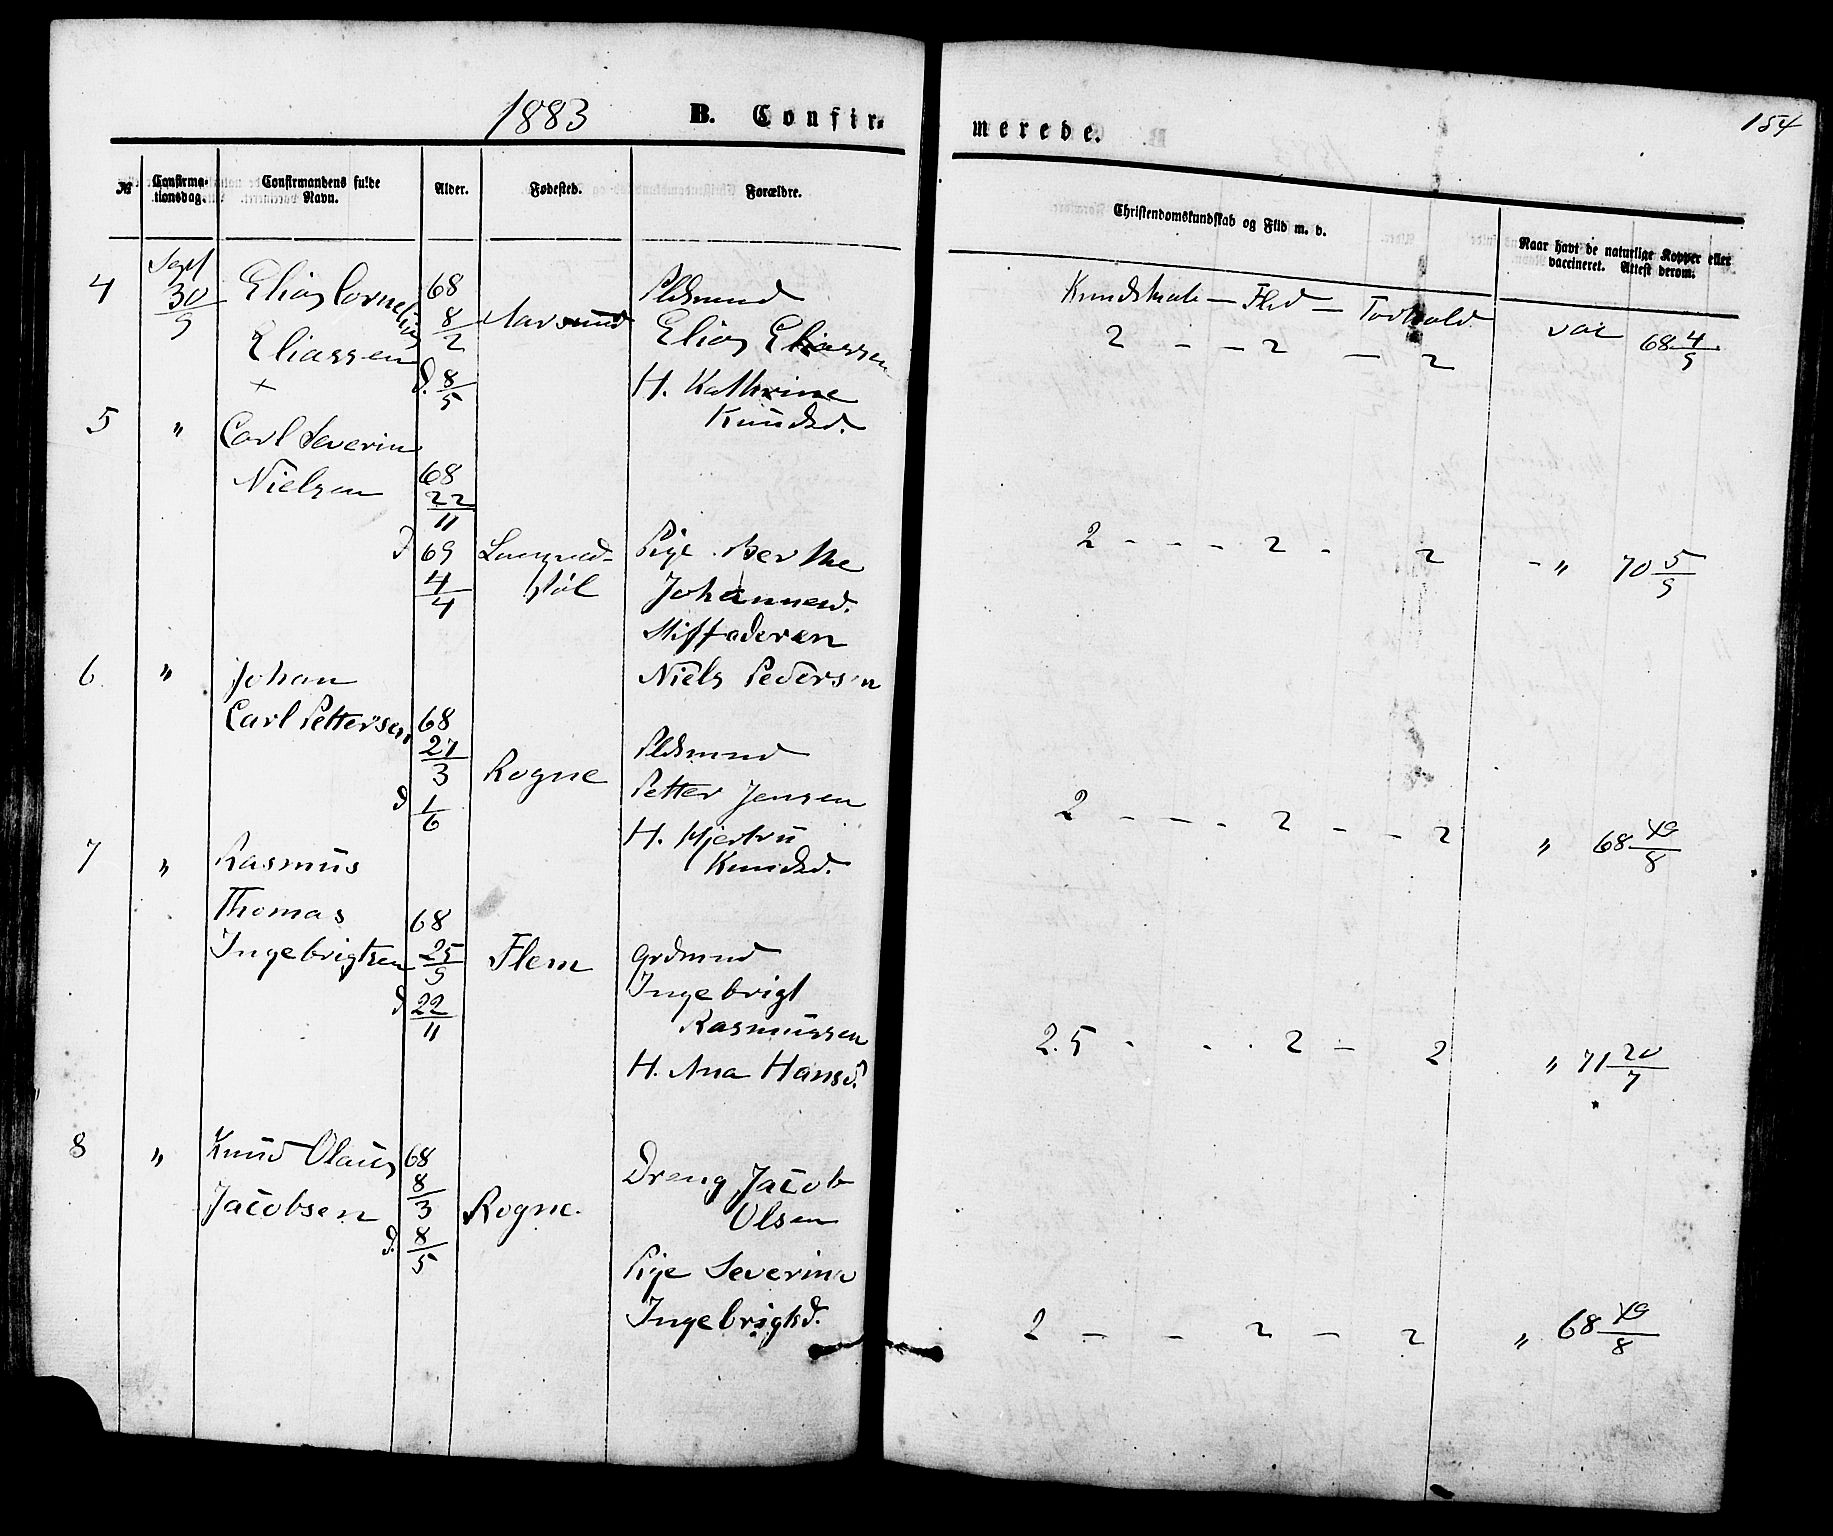 1883 B. Confir-
merede.
154
№
Confirma-
tionsdag.
Confirmandens fulde
Navn.
Alder.
Fødested.
Forældre.
Christendomskundskab og Flid m. v.
Naar havt de naturlige Kopper eller
vaccineret. Attest derom.
4
Sept
30/9
Elias Cornelius
Eliassen
+
68
8/2
d. 8/5
Plsmnd
Elias Eliassen
H. Kathrine
Knudsd.
Kundskab – Flid – Forhold
2 – – 2 – 2
vac 68 4/9
5
"
Carl Severin
Nielsen
68
22/11
d 69
4/4
Pige Berthe
Johannesd.
Stiffaderen
Niels Pedersen
2 – – – 2 – 2
– " 70 5/9
6
"
Johan
Carl Pettersen
68
27/3
d 1/6
Rogne
Plsmnd
Petter Jensen
H. Gjertru
Knudsd.
2 – – – 2 – – 2
" 68 /8
7
"
Rasmus
Thomas
Ingebrigtsen
68
25/9
d 22/11
Flem
Grdmnd
Ingebrigt
Rasmussen
H. Ana Hansd.
2.5 – – . 2 – 2
" 71 20/7
8
"
Knud Olaus
Jacobsen
68
8/3
d. 8/5
Rogne.
Dreng Jacob
Olsen
Pige Severina
Ingebrigtsd.
2 – – 2 – 2
" 68 /8